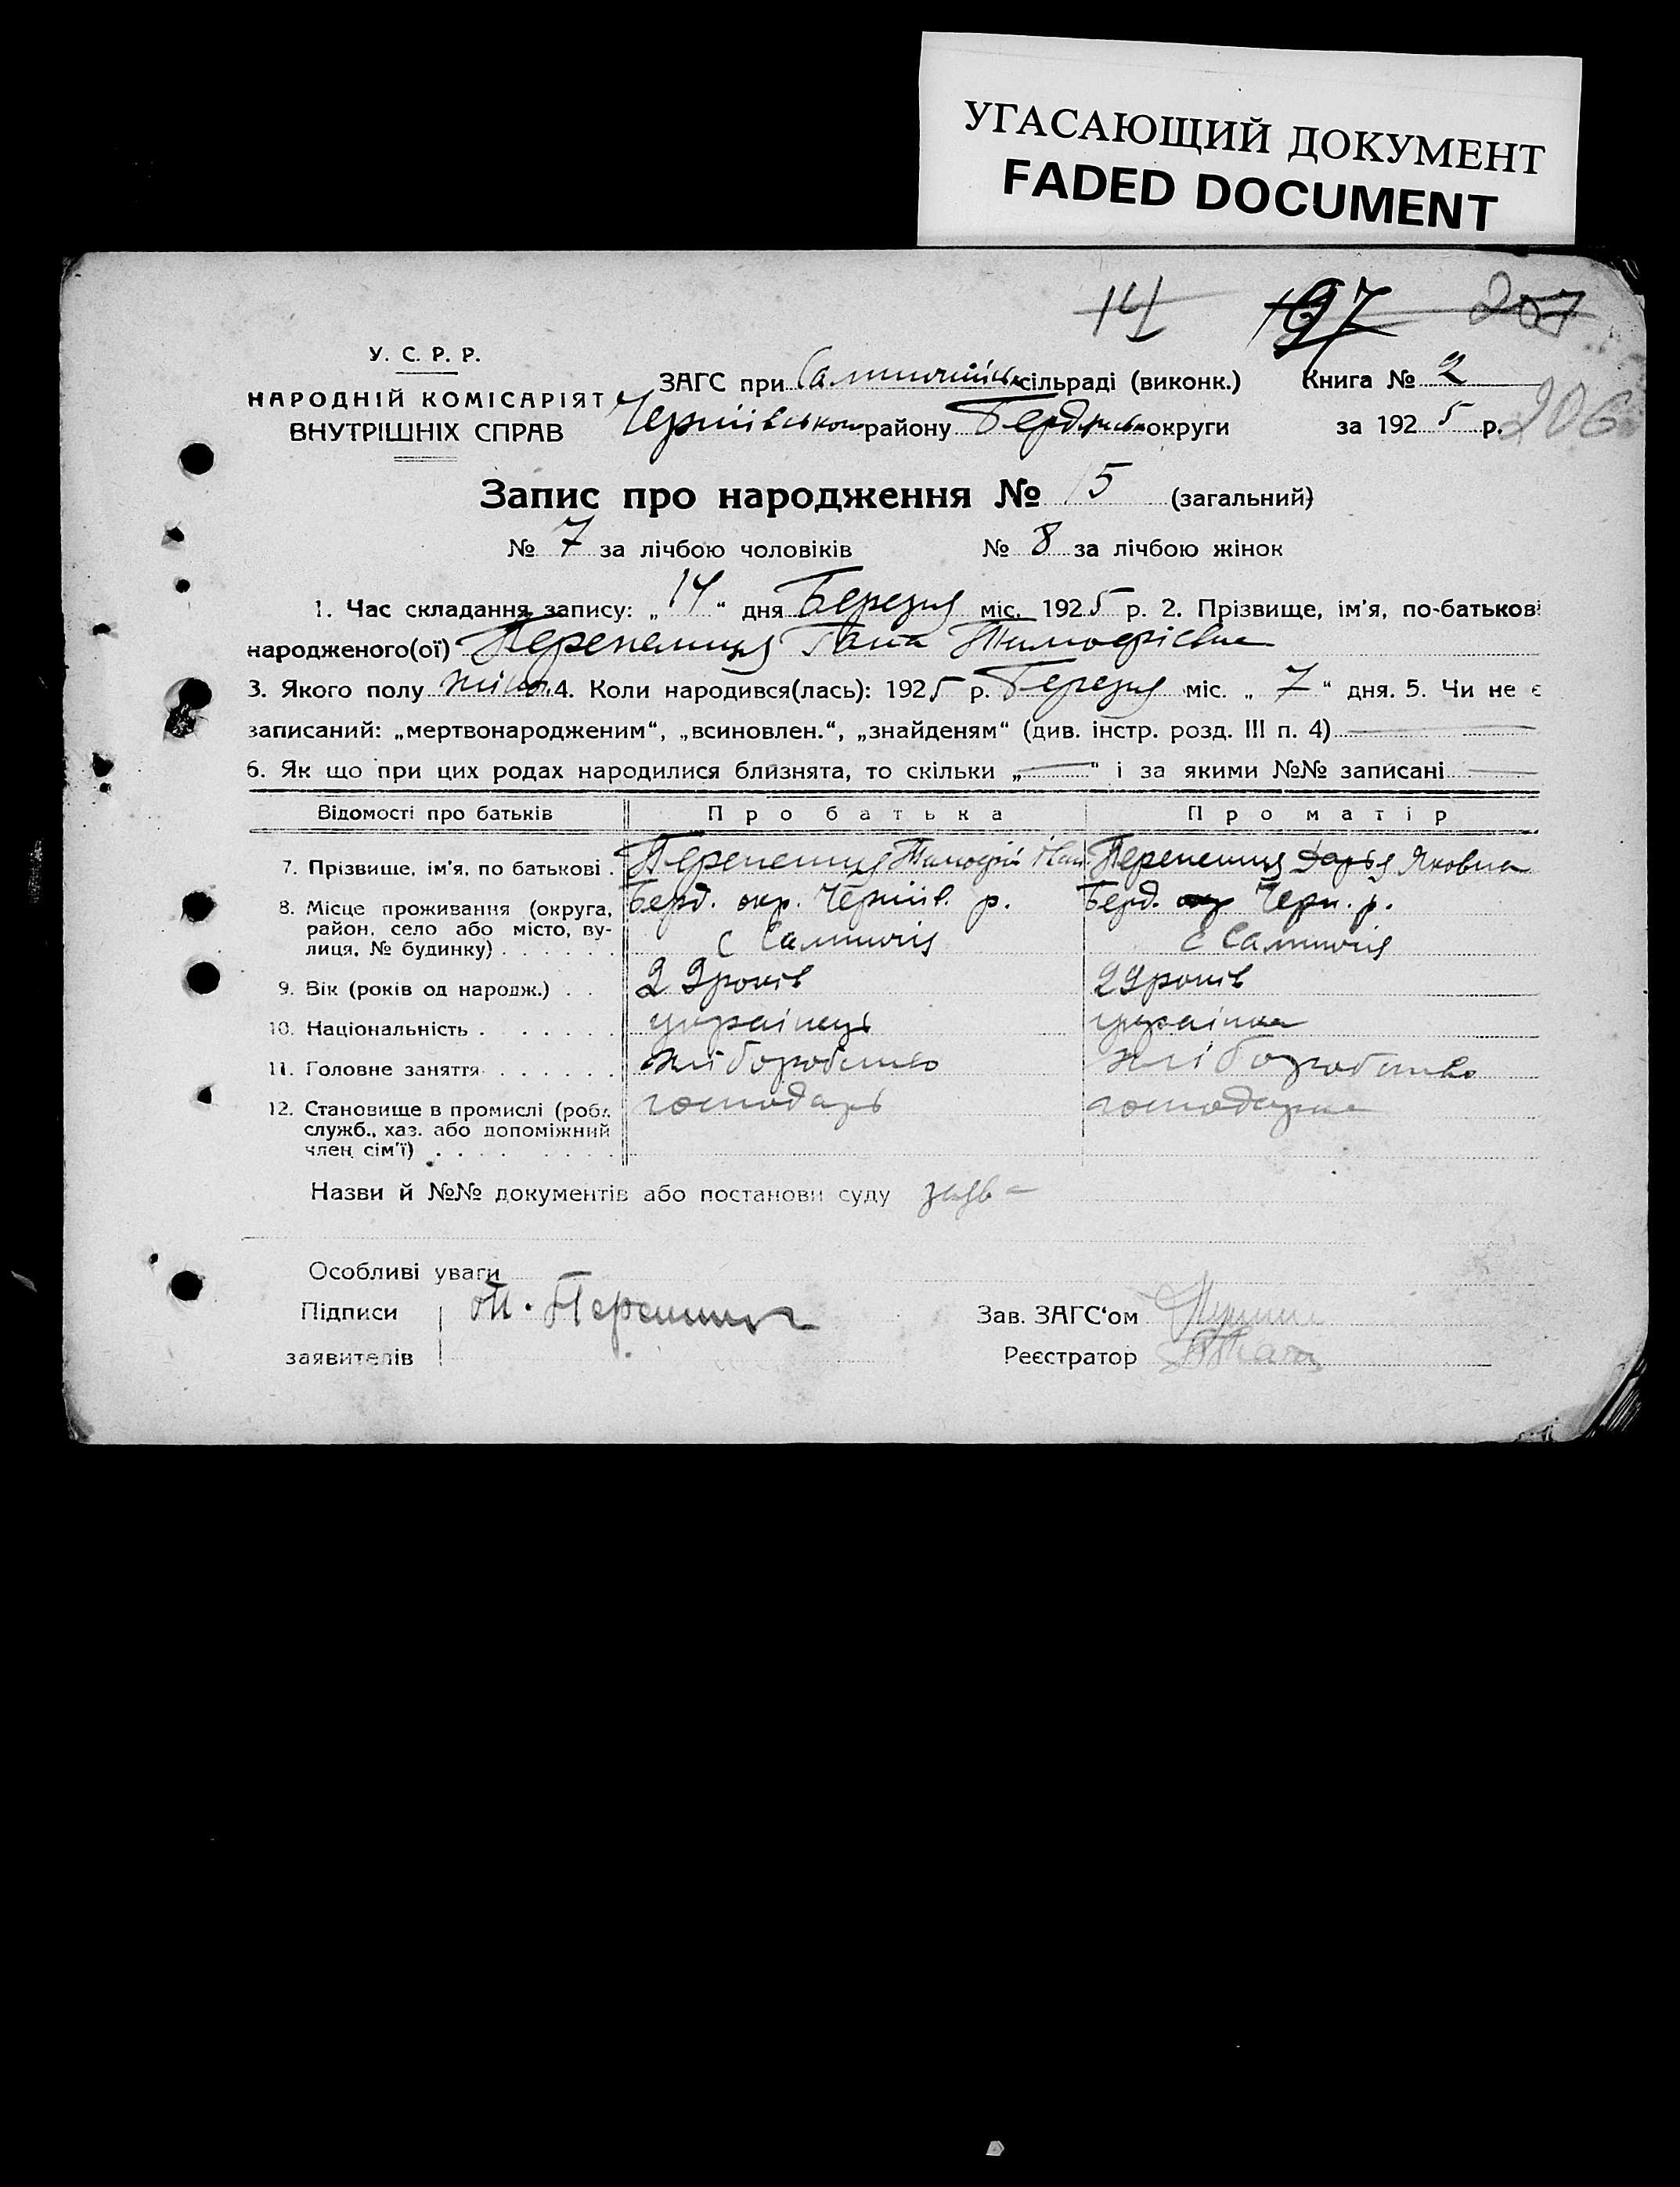 УГАСАЮЩИЙ ДОКУМЕНТ
FADED DOCUMENT
14 197 207
У. С. Р. Р.
НАРОДНІЙ КОМІСАРІЯТ
ВНУТРІШНІХ СПРАВ
ЗАГС при сільраді (виконк.) Книга № 2
району округи за 1925 р. 206
Запис про народження № 15 (загальний)
№ 7 за лічбою чоловіків № 8 за лічбою жінок
1. Час складання запису: „14“ дня Березня міс. 1925 р. 2. Прізвище, ім'я, по-батькові
народженого(ої) Перепелиця Гана Тимофієвна
3. Якого полу жіноч. 4. Коли народився(лась): 1925 р. Березня міс. „7“ дня. 5. Чи не є
записаний: „мертвонародженим“, „всиновлен.“, „знайденям“ (див. інстр. розд. III п. 4)
6. Як що при цих родах народилися близнята, то скільки „—“ і за якими №№ записані
Відомості про батьків Про батька Про матір
7. Прізвище, ім'я, по батькові. Перепелиця Тимофій Іван. Перепелиця Дарья Яковна
8. Місце проживання (округа, Берд. окр. Черніів. р. Берд. окр Черн. р.
район, село або місто, ву-
лиця, № будинку) с с
9. Вік (років од народж.) 22 років 22 років
10. Національність українець українка
11. Головне заняття хліборобство хліборобство
12. Становище в промислі (робл. господарь господарка
служб., хаз. або допоміжний
член сім'ї)
Назви й №№ документів або постанови суду заява
Особливі уваги
Підписи Зав. ЗАГС'ом
заявителів Реєстратор